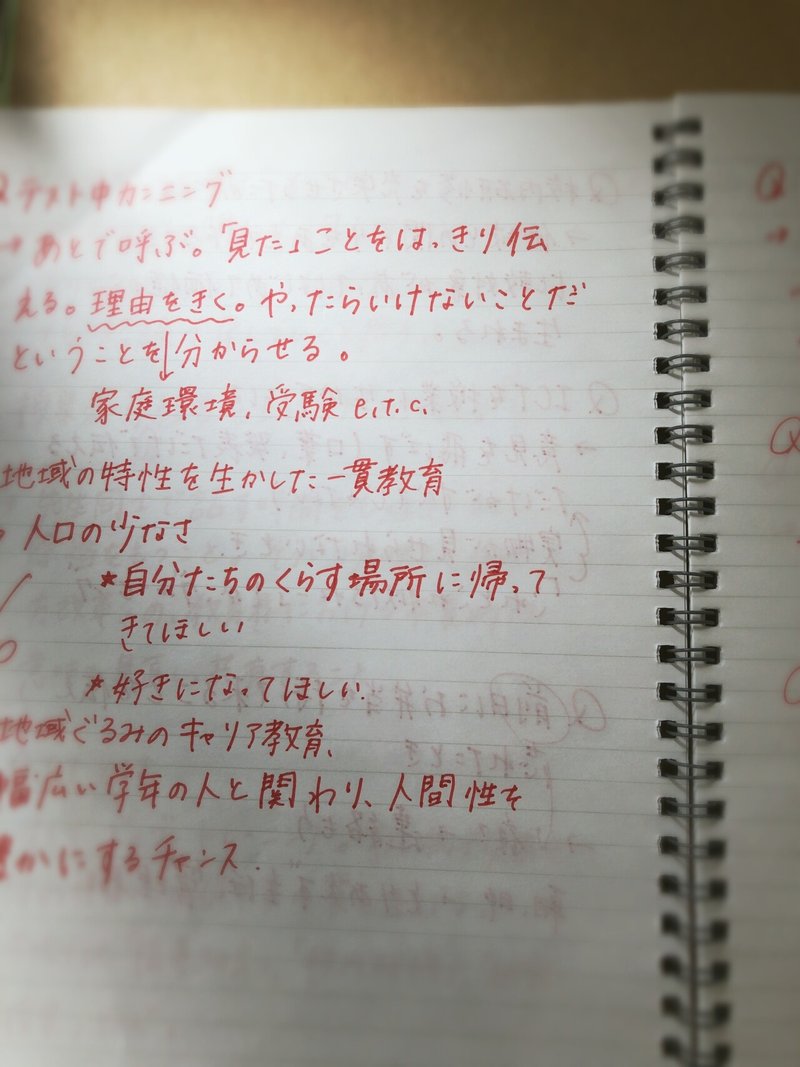 Q テスト中カンニング
→ あとで呼ぶ。「見た」ことをはっきり伝
える。理由をきく。やったらいけないことだ
ということを↓分からせる。
家庭環境、受験 e.t.c.
地域の特性を生かした一貫教育
人口の少なさ
*自分たちのくらす場所に帰って
きてほしい
*好きになってほしい.
地域ぐるみのキャリア教育、
幅広い学年の人と関わり、人間性を
豊かにするチャンス.
Q
→
Q